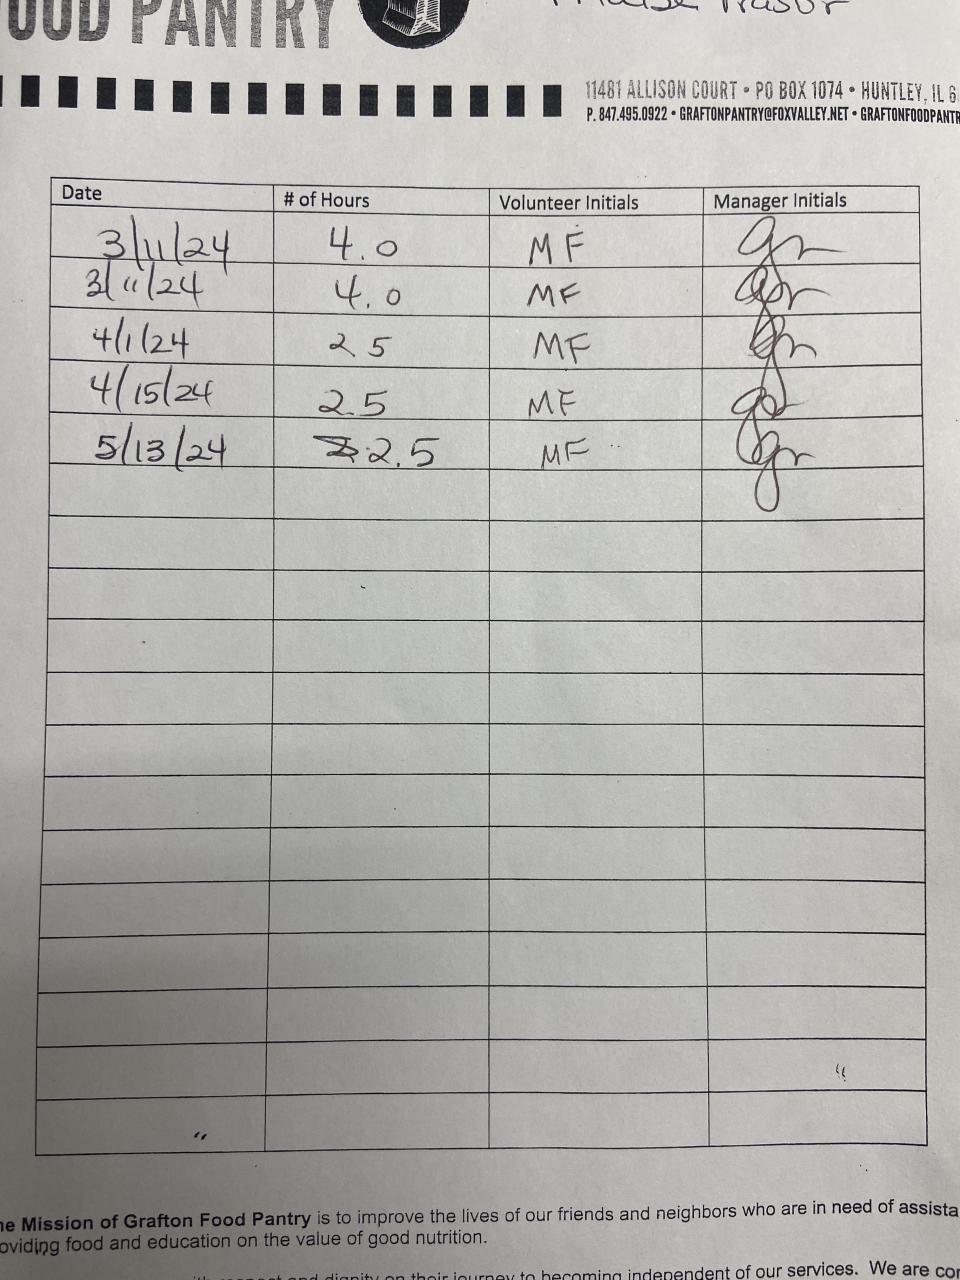 FOOD PANTRY
11481 ALLISON COURT • PO BOX 1074 • HUNTLEY, IL 6
P. 847.495.0922 • GRAFTONPANTRY@FOXVALLEY.NET • GRAFTONFOODPANTR
Date # of Hours Volunteer Initials Manager Initials
3/11/24 4.0 MF gr
3/11/24 4.0 MF gr
4/1/24 2 5 MF gr
4/15/24 2.5 MF
5/13/24 2.5 MF gr
he Mission of Grafton Food Pantry is to improve the lives of our friends and neighbors who are in need of assista
oviding food and education on the value of good nutrition.
respect and dignity on their journey to becoming independent of our services. We are con